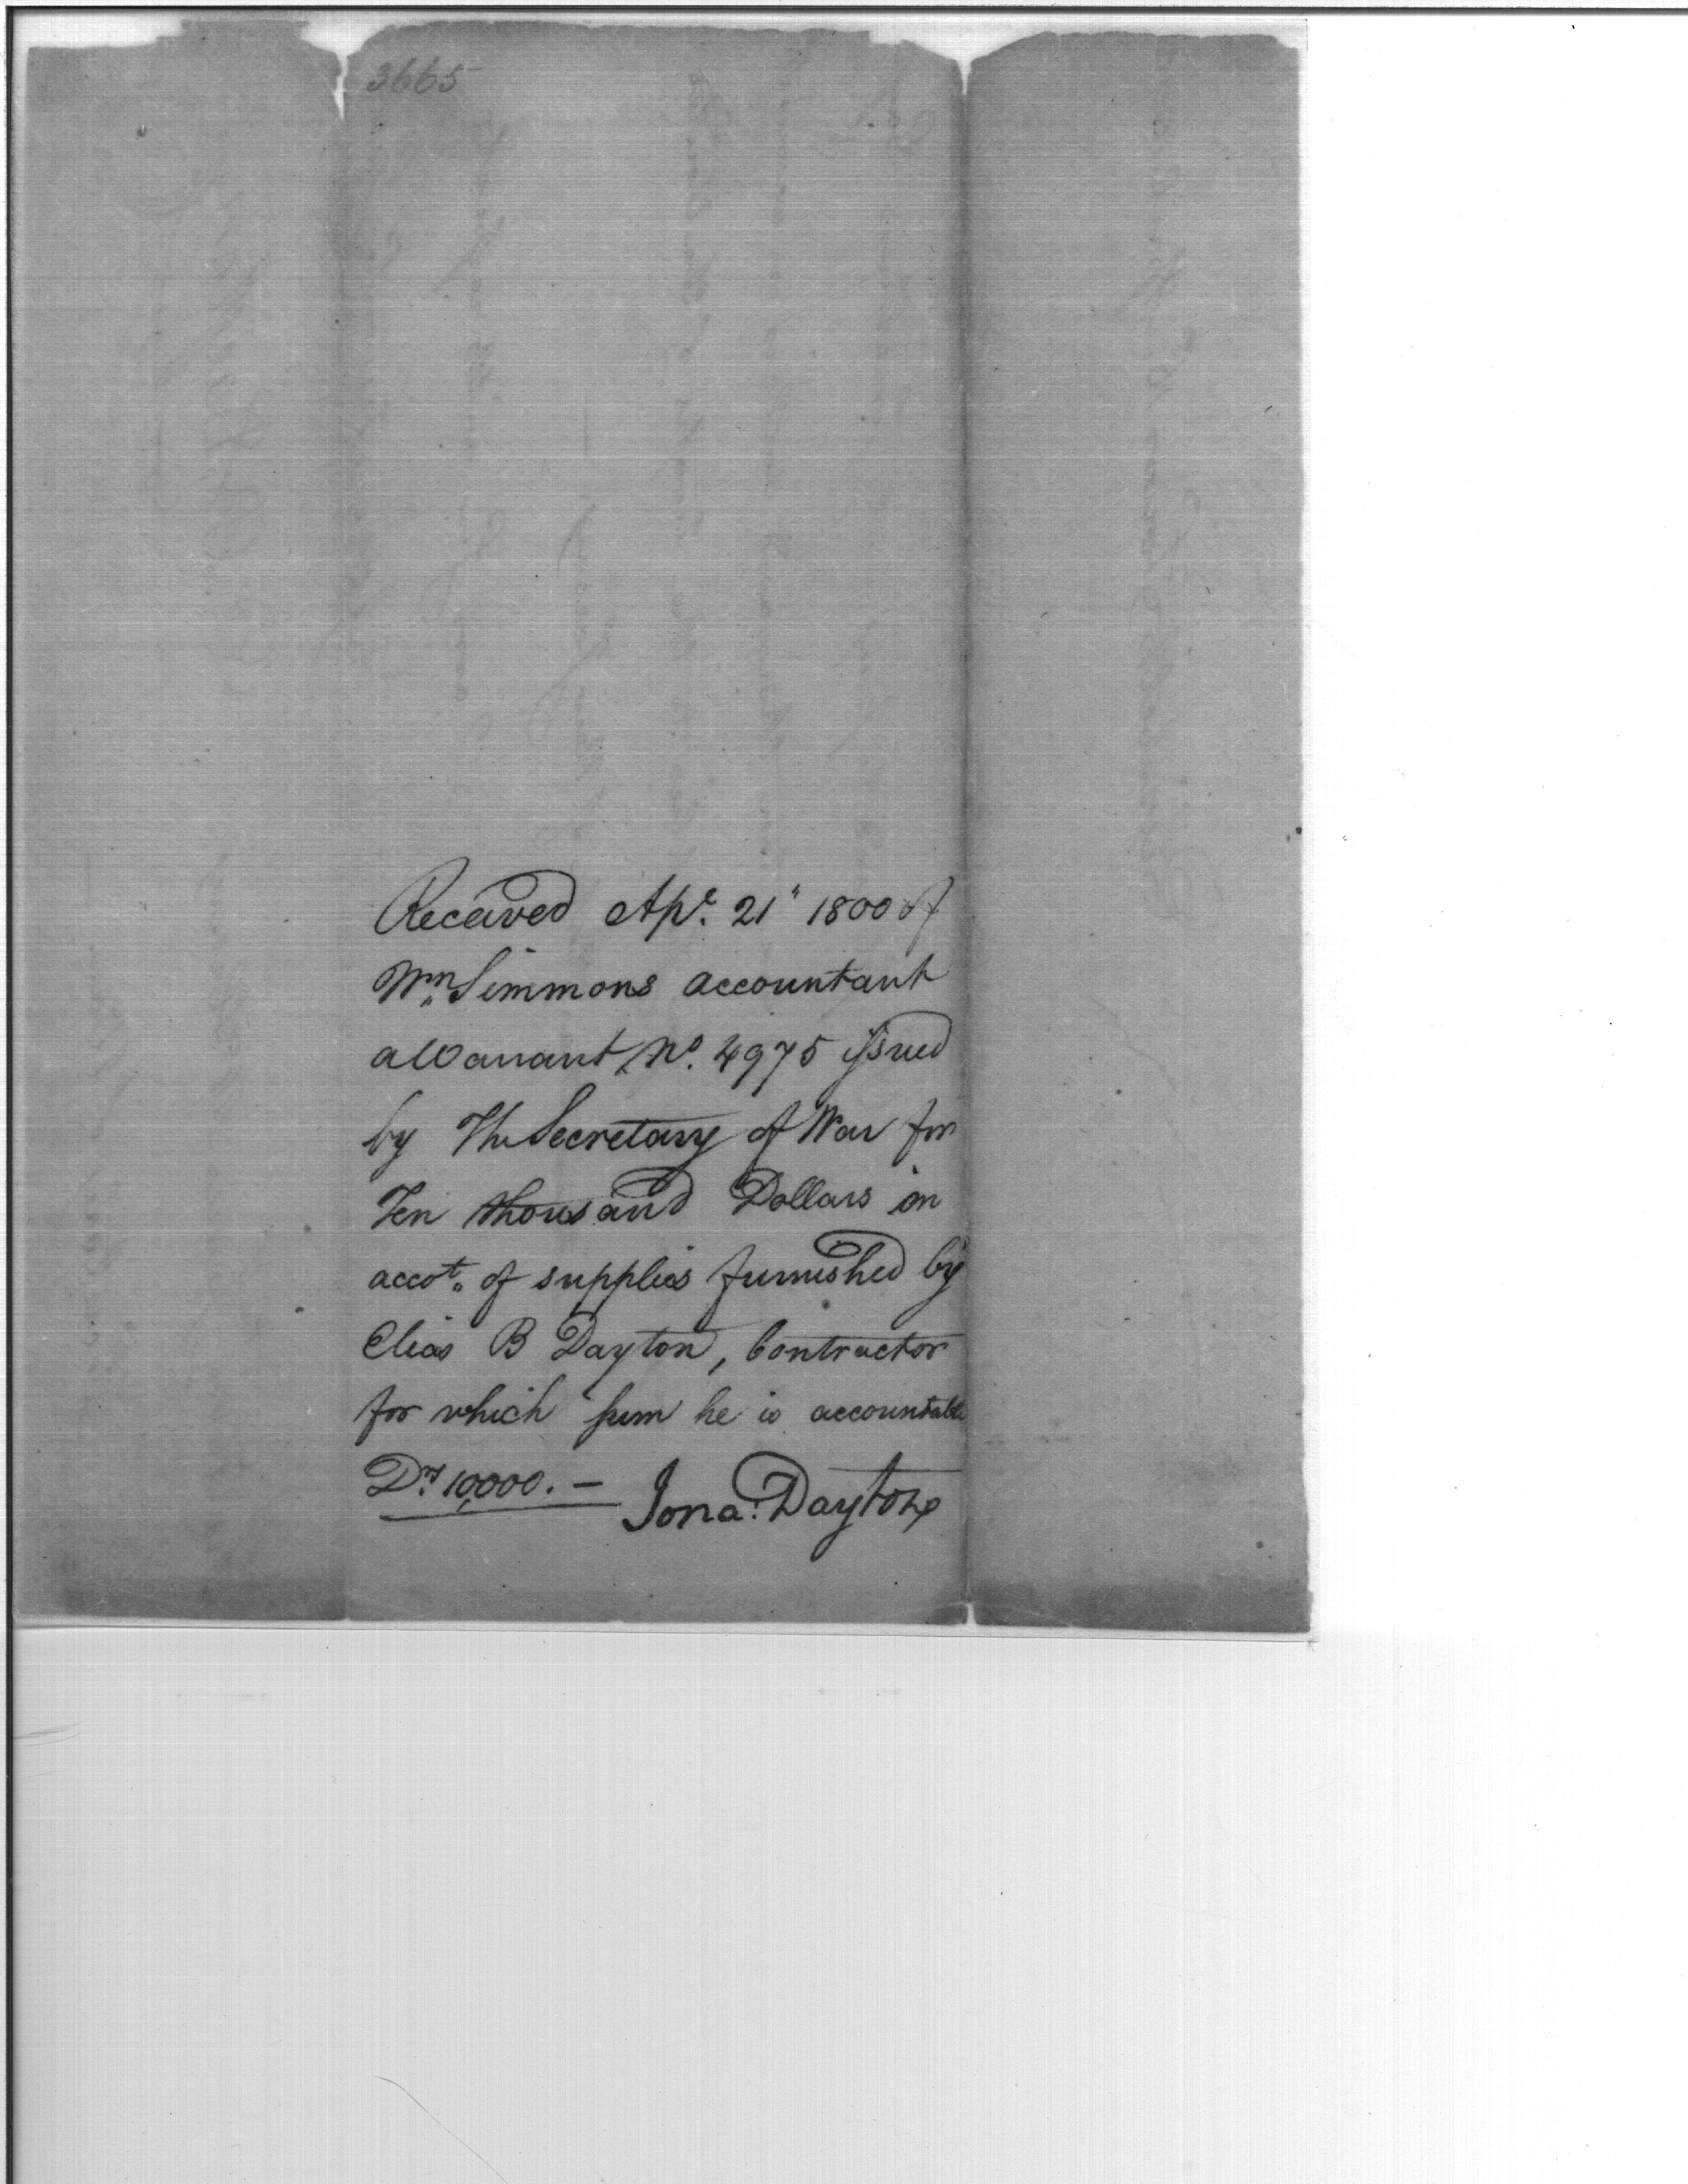 3665
Received Apr. 21" 1800 of
Wm. Simmons accountant
a Warrant, No. 4975 issued
by The Secretary of War for
Ten thousand Dollars on
accot. of supplies furnished by
Elias B Dayton, Contractor
for which sum he is accountable
Drs. 10,000. —
Jona: Dayton